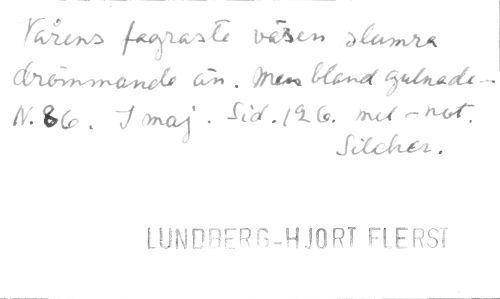 Vårens fagraste väsen slumra
drömmande än. Men bland gulnade -
N. 86. I maj. Sid. 126. mel-not.
Silcher.
LUNDBERG-HJORT FLERST